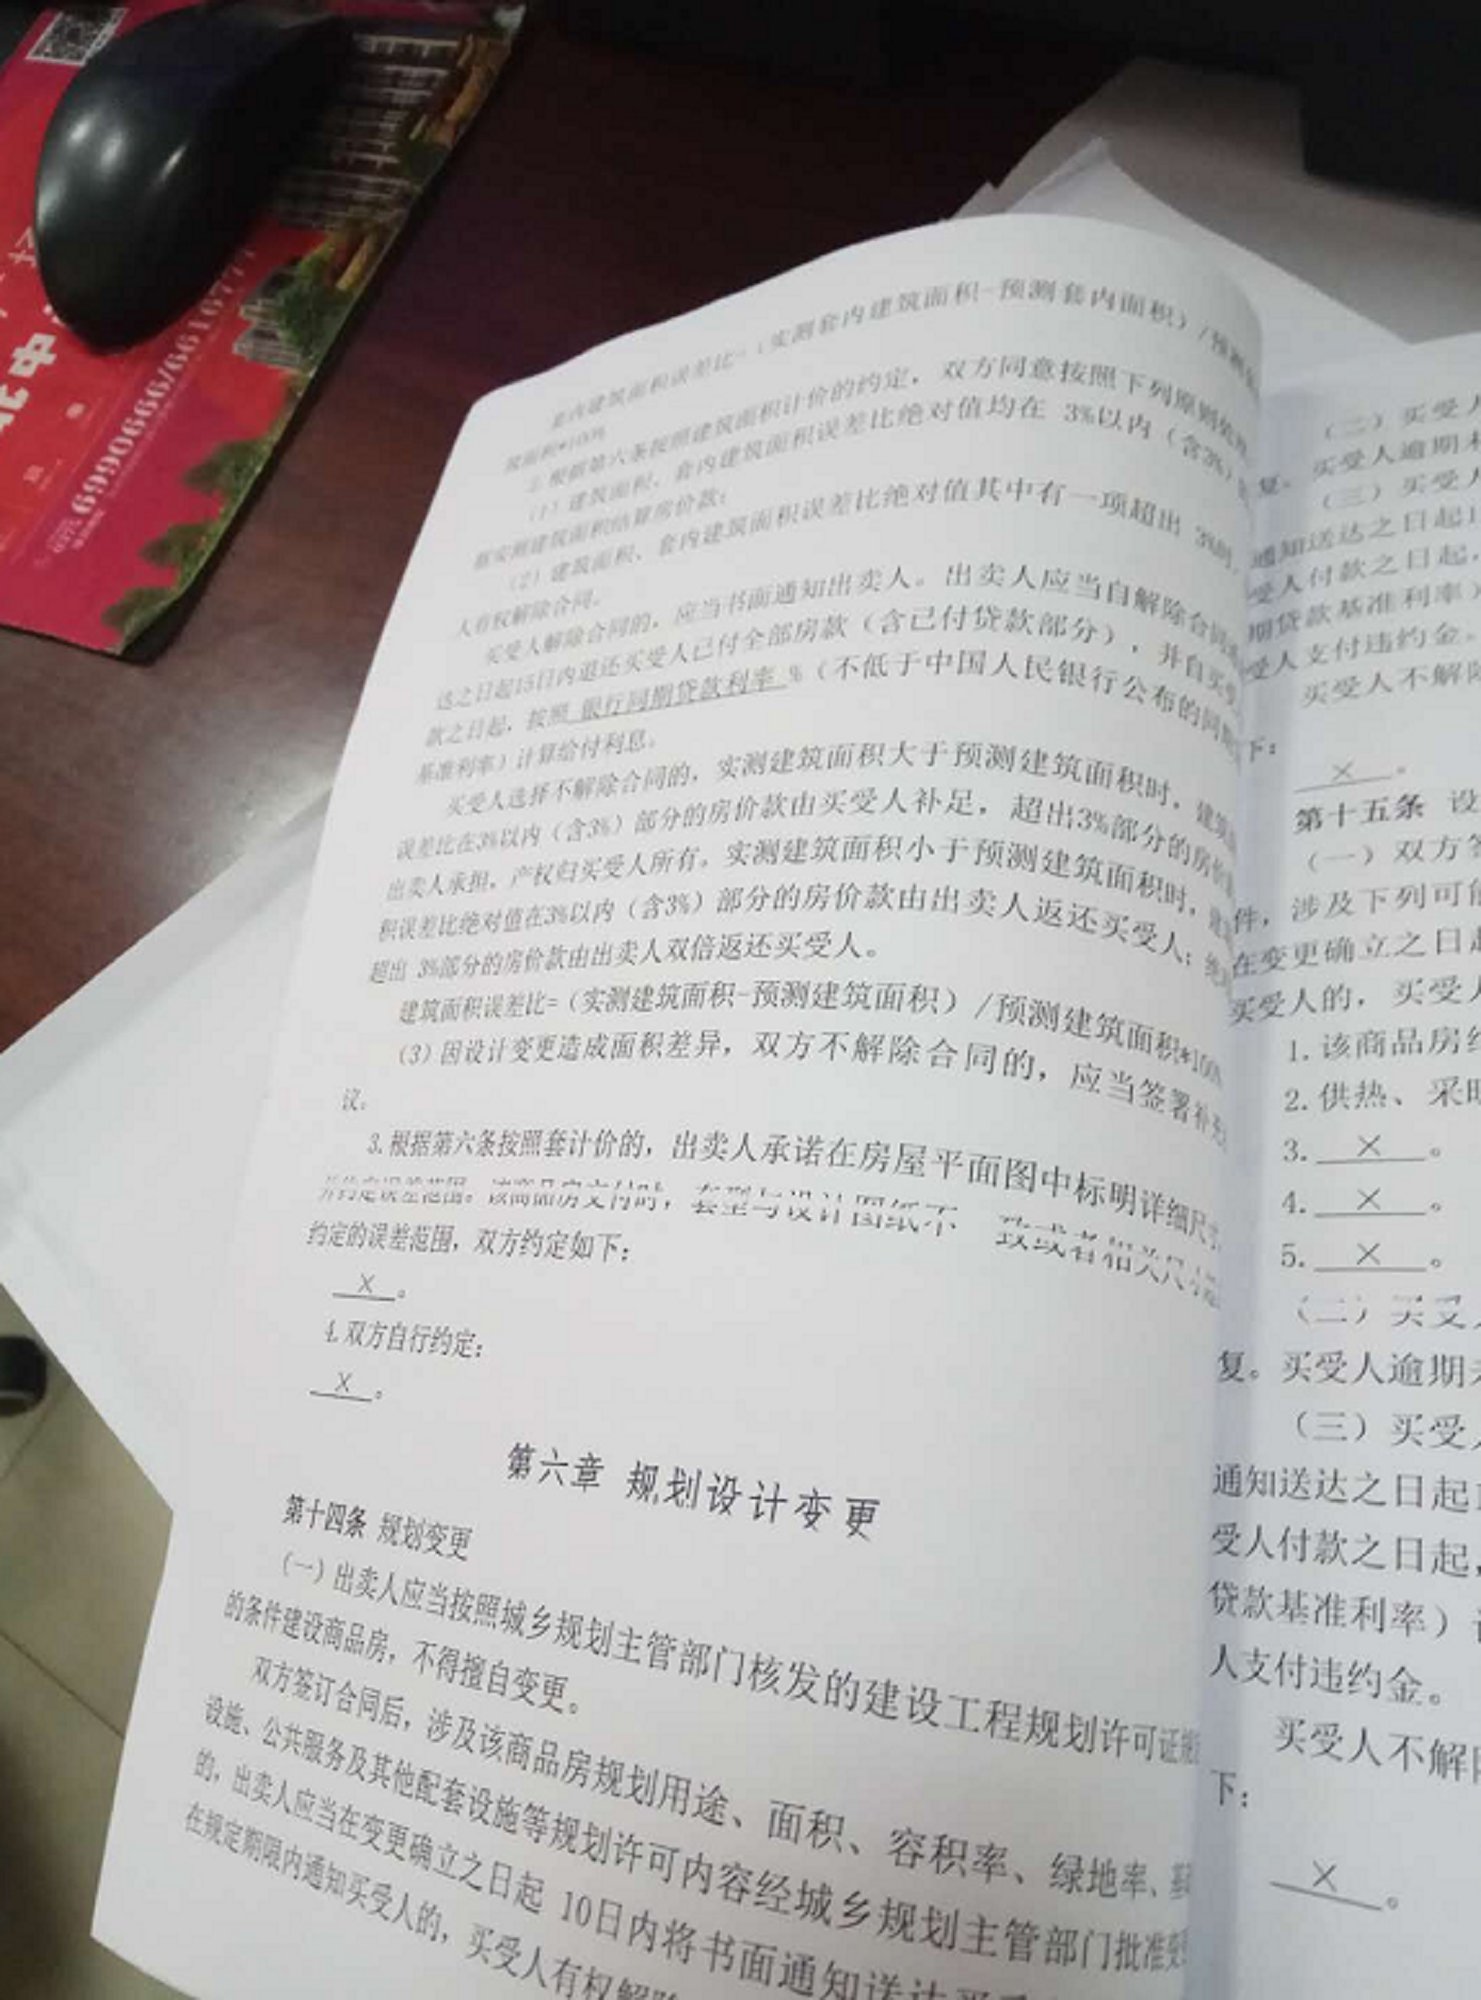 69906666/6616777
套内建筑面积误差比=(实测套内建筑面积-预测套内面积)/预测
筑面积*100%
2.根据第六条按照建筑面积计价的约定，双方同意按照下列原则处理
(1)建筑面积、套内建筑面积误差比绝对值均在 3%以内(含3%)
据实测建筑面积结算房价款；
(2)建筑面积、套内建筑面积误差比绝对值其中有一项超出 3%时，
人有权解除合同。
买受人解除合同的，应当书面通知出卖人。出卖人应当自解除合同
达之日起15日内退还买受人已付全部房款(含已付贷款部分)，并自买受
款之日起，按照 银行同期贷款利率 %(不低于中国人民银行公布的同期
基准利率)计算给付利息。
买受人选择不解除合同的，实测建筑面积大于预测建筑面积时，建筑
误差比在3%以内(含3%)部分的房价款由买受人补足，超出3%部分的房价
出卖人承担，产权归买受人所有。实测建筑面积小于预测建筑面积时，建
积误差比绝对值在3%以内(含3%)部分的房价款由出卖人返还买受人；绝
超出 3%部分的房价款由出卖人双倍返还买受人。
建筑面积误差比=(实测建筑面积-预测建筑面积)/预测建筑面积*100%
(3)因设计变更造成面积差异，双方不解除合同的，应当签署补充
议。
3.根据第六条按照套计价的，出卖人承诺在房屋平面图中标明详细尺寸
并约定误差范围。该商品房交付时，套型与设计图纸不一致或者相关尺寸
约定的误差范围，双方约定如下：
X。
4.双方自行约定：
X。
第六章 规划设计变更
第十四条 规划变更
(一)出卖人应当按照城乡规划主管部门核发的建设工程规划许可证
的条件建设商品房，不得擅自变更。
双方签订合同后，涉及该商品房规划用途、面积、容积率、绿地率、基
设施、公共服务及其他配套设施等规划许可内容经城乡规划主管部门批准变
的，出卖人应当在变更确立之日起 10日内将书面通知送达买受
在规定期限内通知买受人的，买受人有权解除
(二)买受人
复。买受人逾期未
(三)买受人
通知送达之日起
受人付款之日起，
期贷款基准利率)
受人支付违约金。
买受人不解除
下：
X。
第十五条 设
(一)双方签
件，涉及下列可能
在变更确立之日起
买受人的，买受人
1.该商品房结
2.供热、采暖
3. X 。
4. X 。
5. X 。
(二)买受人
复。买受人逾期未
(三)买受人
通知送达之日起
受人付款之日起，
贷款基准利率)计
人支付违约金。
买受人不解除
下：
X。